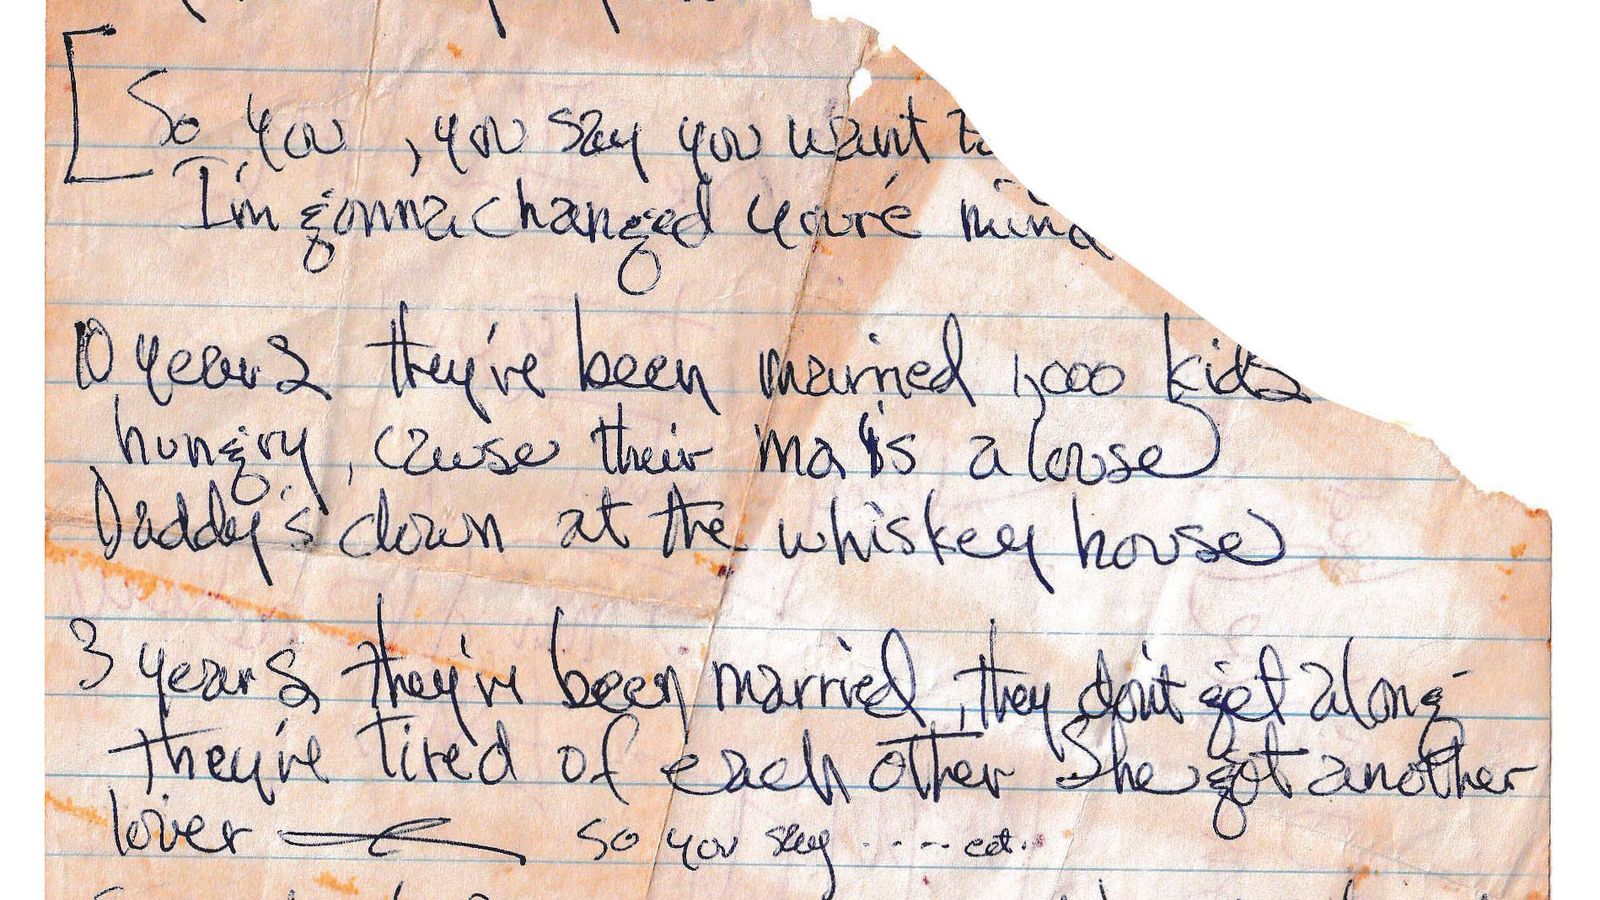 So you, you say you want
I'm gonna changed your'e mind
10 years they've been married 1,000 kids
hungry, cause their ma is a louse
Daddy's down at the whiskey house
3 years they've been married, they don't get along
they're tired of each other She got another
lover — so you say ..... ect.